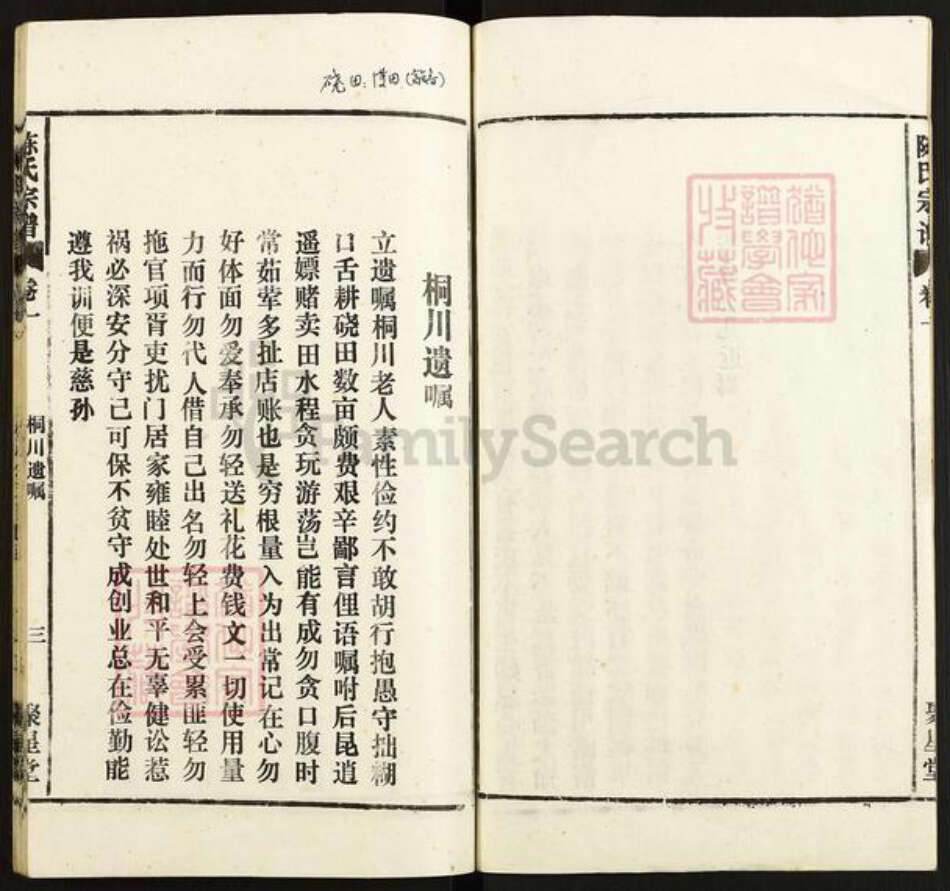 硗田：薄田（贫瘠）
陈氏宗谱 卷一
聚星堂
桐川遗嘱
立遗嘱桐川老人素性俭约不敢胡行抱愚守拙糊
口舌耕硗田数亩颇费艰辛鄙言俚语嘱咐后昆逍
遥嫖赌卖田水程贪玩游荡岂能有成勿贪口腹时
常茹荤多扯店账也是穷根量入为出常记在心勿
好体面勿爱奉承勿轻送礼花费钱文一切使用量
力而行勿代人借自己出名勿轻上会受累匪轻勿
拖官项胥吏扰门居家雍睦处世和平无辜健讼惹
祸必深安分守己可保不贫守成创业总在俭勤能
遵我训便是慈孙
陈氏宗谱 卷一 桐川遗嘱 三 聚星堂
FamilySearch